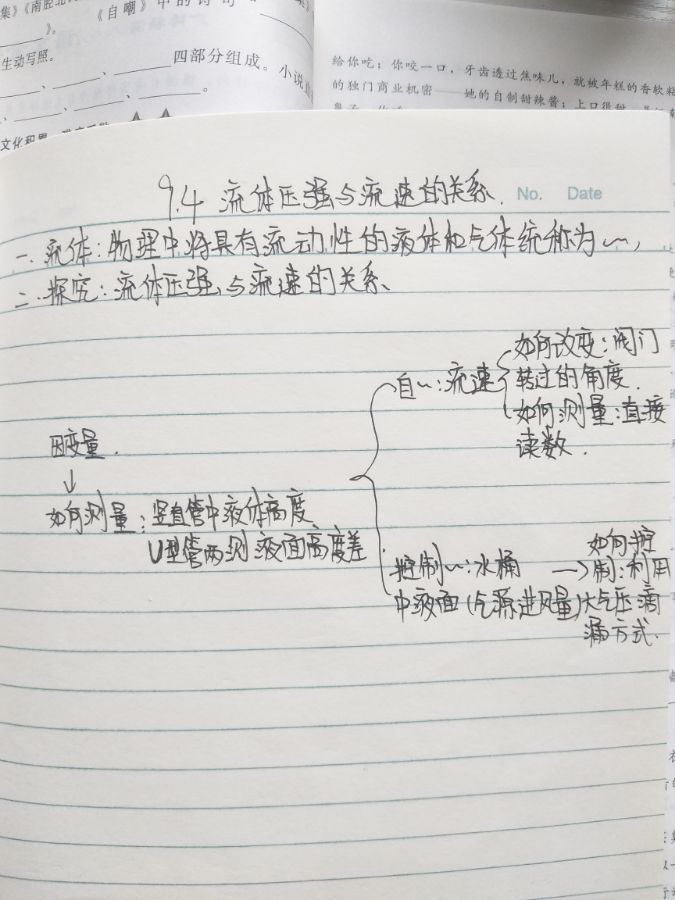 集》《南腔北
《自嘲》中的诗句“
》。
生动写照。
、　、　四部分组成。小说
、　、　、　。
给你吃；你咬一口，牙齿透过焦味儿，就被年糕的香软粘
的独门商业机密——她的自制甜辣酱；上口很甜
No. Date
9.4 流体压强与流速的关系.
一.流体：物理中将具有流动性的液体和气体统称为～，
二.探究：流体压强与流速的关系
自～：流速
如何改变：阀门
转过的角度.
如何测量：直接
读数.
因变量.
↓
如何测量：竖直管中液体高度
U型管两测液面高度差
控制～：水桶
中液面（气源进风量）
→如何控
制：利用
大气压滴
漏方式.